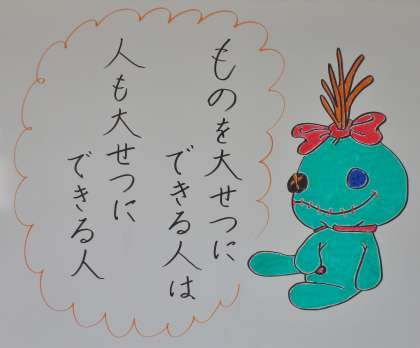 ものを大せつに
できる人は
人も大せつに
できる人